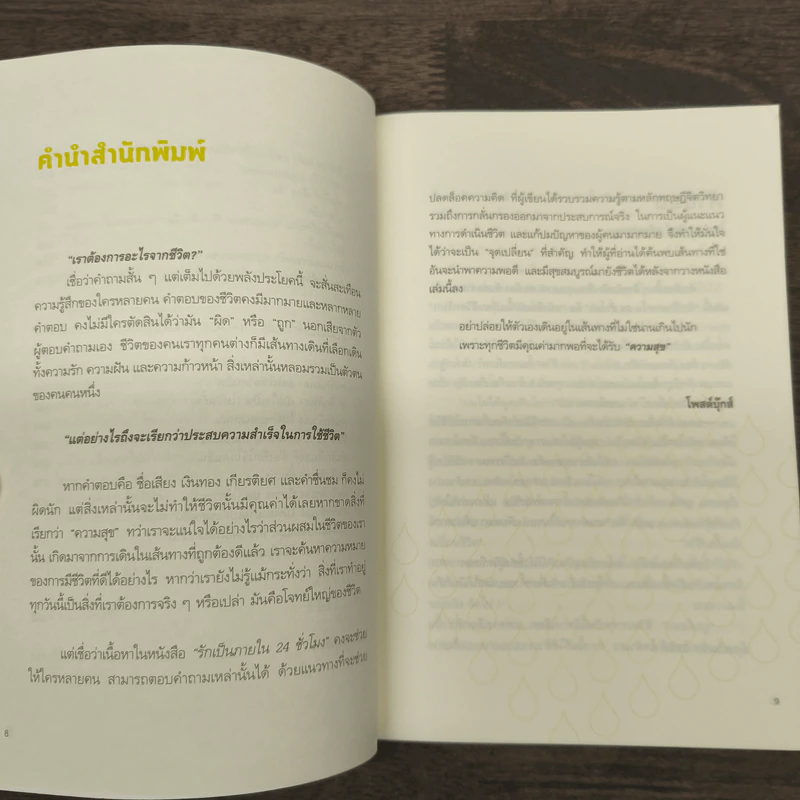 คำนำสำนักพิมพ์
“เราต้องการอะไรจากชีวิต?”
เชื่อว่าคำถามสั้น ๆ แต่เต็มไปด้วยพลังประโยคนี้ จะสั่นสะเทือน
ความรู้สึกของใครหลายคน คำตอบของชีวิตคงมีมากมายและหลากหลาย
คำตอบ คงไม่มีใครตัดสินได้ว่ามัน “ผิด” หรือ “ถูก” นอกเสียจากตัว
ผู้ตอบคำถามเอง ชีวิตของคนเราทุกคนต่างก็มีเส้นทางเดินที่เลือกเดิน
ทั้งความรัก ความฝัน และความก้าวหน้า สิ่งเหล่านั้นหลอมรวมเป็นตัวตน
ของคนคนหนึ่ง
“แต่อย่างไรถึงจะเรียกว่าประสบความสำเร็จในการใช้ชีวิต”
หากคำตอบคือ ชื่อเสียง เงินทอง เกียรติยศ และคำชื่นชม ก็คงไม่
ผิดนัก แต่สิ่งเหล่านั้นจะไม่ทำให้ชีวิตนั้นมีคุณค่าได้เลยหากขาดสิ่งที่
เรียกว่า “ความสุข” ทว่าเราจะแน่ใจได้อย่างไรว่าส่วนผสมในชีวิตของเรา
นั้น เกิดมาจากการเดินในเส้นทางที่ถูกต้องดีแล้ว เราจะค้นหาความหมาย
ของการมีชีวิตที่ดีได้อย่างไร หากว่าเรายังไม่รู้แม้กระทั่งว่า สิ่งที่เราทำอยู่
ทุกวันนี้เป็นสิ่งที่เราต้องการจริง ๆ หรือเปล่า มันคือโจทย์ใหญ่ของชีวิต
แต่เชื่อว่าเนื้อหาในหนังสือ “รักเป็นภายใน 24 ชั่วโมง” คงจะช่วย
ให้ใครหลายคน สามารถตอบคำถามเหล่านั้นได้ ด้วยแนวทางที่จะช่วย
8
ปลดล็อคความคิด ที่ผู้เขียนได้รวบรวมความรู้ตามหลักทฤษฎีจิตวิทยา
รวมถึงการกลั่นกรองออกมาจากประสบการณ์จริง ในการเป็นผู้แนะแนว
ทางการดำเนินชีวิต และแก้ปมปัญหาของผู้คนมามากมาย จึงทำให้มั่นใจ
ได้ว่าจะเป็น “จุดเปลี่ยน” ที่สำคัญ ทำให้ผู้ที่อ่านได้ค้นพบเส้นทางที่ใช่
อันจะนำพาความพอดี และมีสุขสมบูรณ์มายังชีวิตได้หลังจากวางหนังสือ
เล่มนี้ลง
อย่าปล่อยให้ตัวเองเดินอยู่ในเส้นทางที่ไม่ใช่นานเกินไปนัก
เพราะทุกชีวิตมีคุณค่ามากพอที่จะได้รับ “ความสุข”
โพสต์บุ๊กส์
9